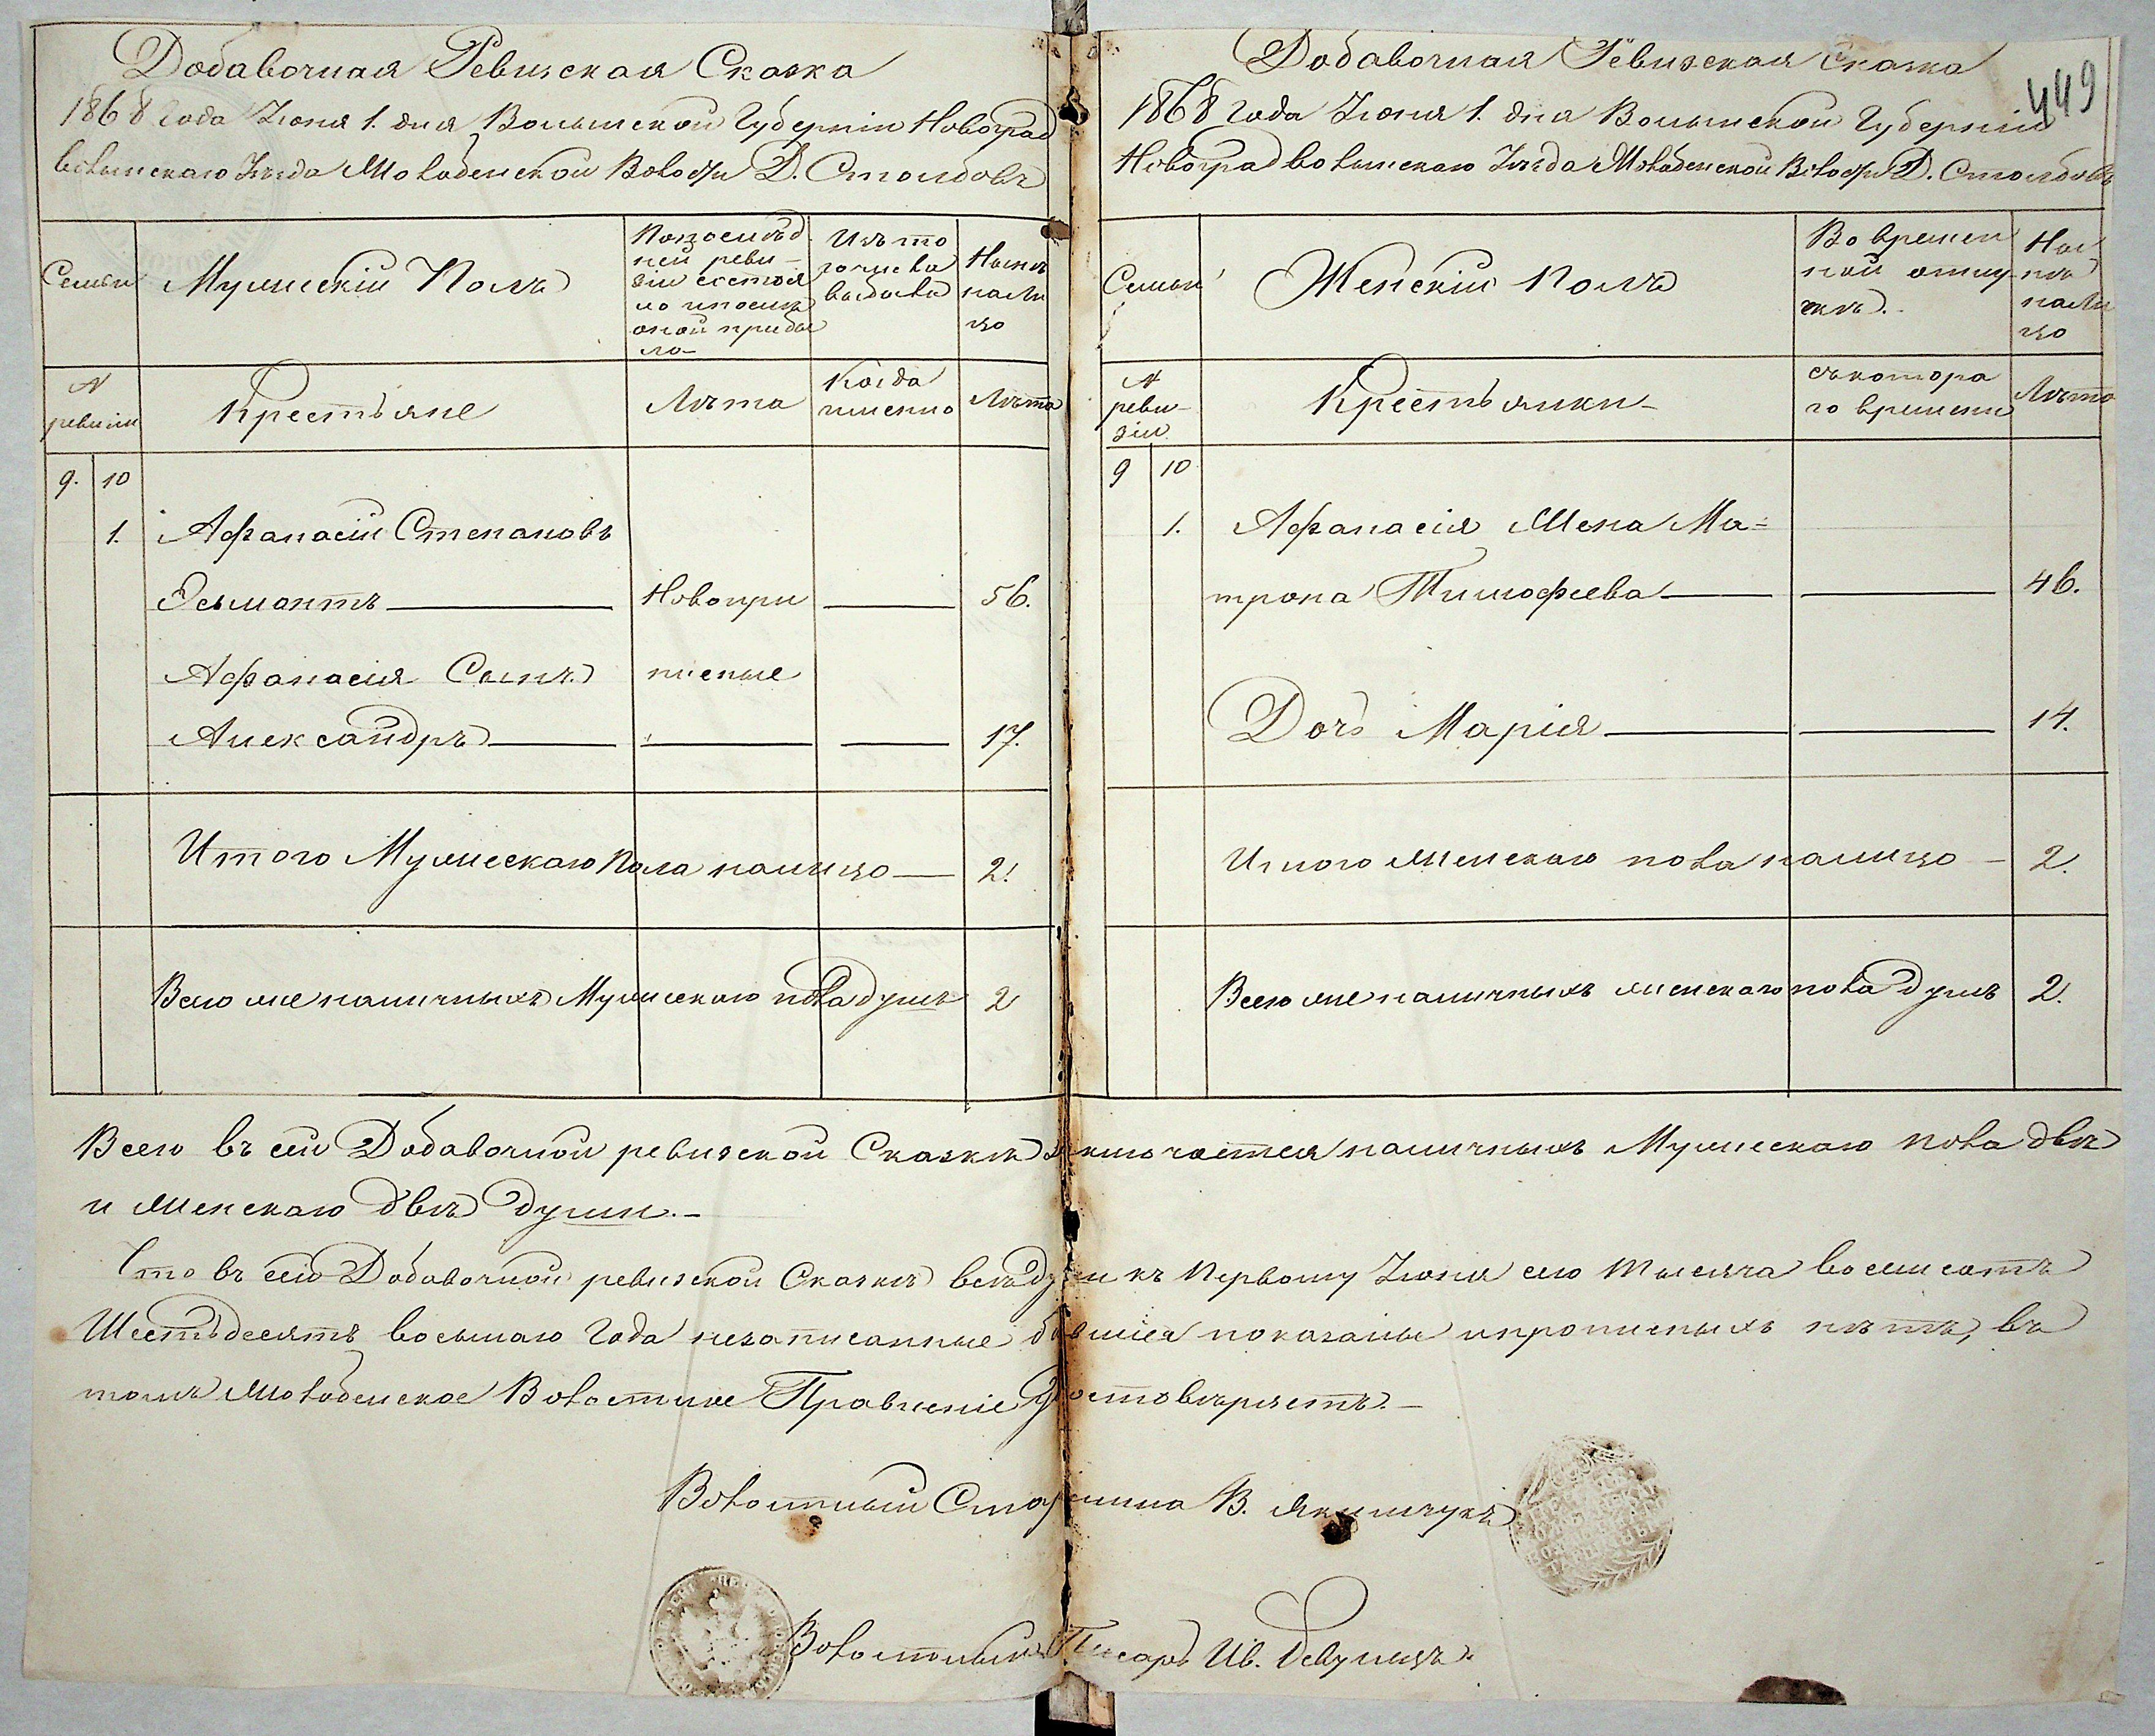 Добавочная Ревизская Сказка
1868 года Іюня 1. дня Волынской Губерніи Новоград
волынскаго Уѣзда Молоденской Волости Д. Столбовъ
Семьи
Мужескій Полъ
По послѣд
ней реви-
зіи состоя
ло и послѣ
оной прибы
ло-
Изъ то
го числа
выбыло
Нынѣ
на ли
цо
№
ревизіи
Крестьяне
Лѣта
Когда
именно
Лѣта
9. 10
1. Афанасій Степановъ
Осьмонтъ Новопри 56.
Афанасія Сынъ писные
Александръ 17.
Итого Мужескаго Пола налицо 2.
Всего же наличныхъ Мужескаго пола душъ 2
Добавочная Ревизская Сказка
449
1868 года Іюня 1. дня Волынской Губерніи
Новоградволынскаго Уѣзда Молоденской Волости Д. Столбовъ
Семьи
Женскій Полъ
Во времен
ной отлу
чкѣ.
Ны
нѣ
на ли
цо
№
реви-
зіи
Крестьянки
съ котора
го времени
Лѣта
9 10
1. Афанасія Жена Ма=
трона Тимофеева 46.
Дочь Марія 14.
Итого женскаго пола налицо 2.
Всего же наличныхъ женскаго пола душъ 2.
Всего въ сей Добавочной ревизской Сказкѣ заключается наличныхъ Мужескаго пола двѣ
и женскаго двѣ души.-
Что въ сей Добавочной ревизской Сказкѣ всѣ души къ Первому Іюня сего тысяча восемсотъ
Шестьдесятъ восьмаго года незаписанные бывшія показаны и прописныхъ нѣтъ, въ
томъ Молоденское Волостное Правленіе удостовѣряетъ.-
Волостный Старшина В. Якимчукъ
Волостный Писарь Ив.